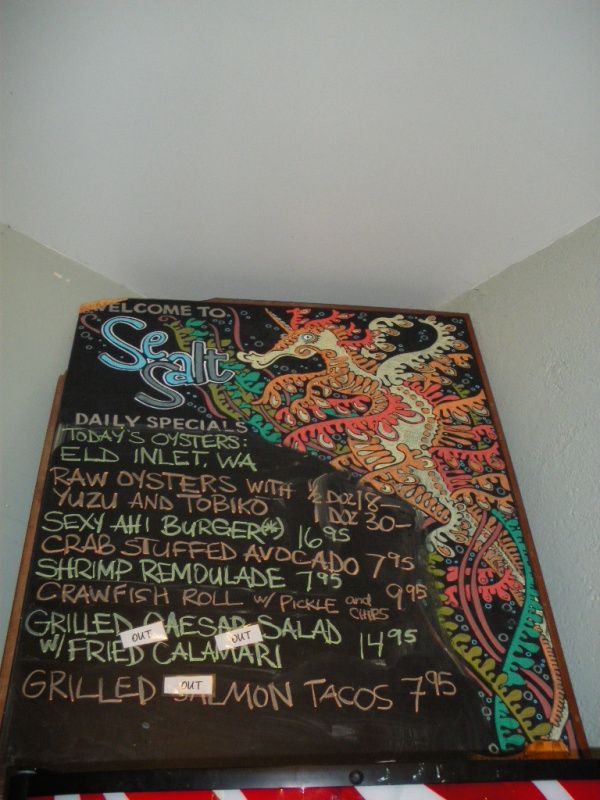 WELCOME TO
Sea Salt
DAILY SPECIALS
TODAY'S OYSTERS:
ELD INLET, WA
RAW OYSTERS WITH ½ DOZ 18-
YUZU AND TOBIKO 1 DOZ 30-
SEXY AHI BURGER(*) 16 95
CRAB STUFFED AVOCADO 7 95
SHRIMP REMOULADE 7 95
CRAWFISH ROLL W/ PICKLE and CHIPS 9 95
GRILLED CAESAR SALAD
OUT OUT
W/ FRIED CALAMARI 14 95
GRILLED SALMON TACOS 7 95
OUT